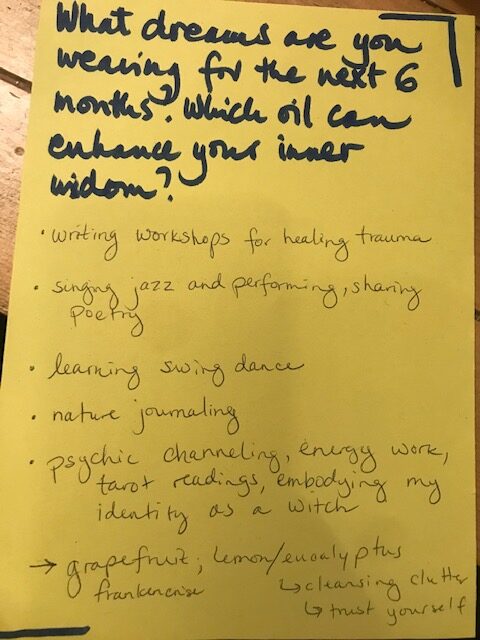 What dreams are you
weaving for the next 6
months? Which oil can
enhance your inner
widom?
• writing workshops for healing trauma
• singing jazz and performing, sharing
poetry
• learning swing dance
• nature journaling
• psychic channeling, energy work,
tarot readings, embodying my
identity as a witch
→ grapefruit; lemon/eucalyptus
frankencense
↳ cleansing clutter
↳ trust yourself